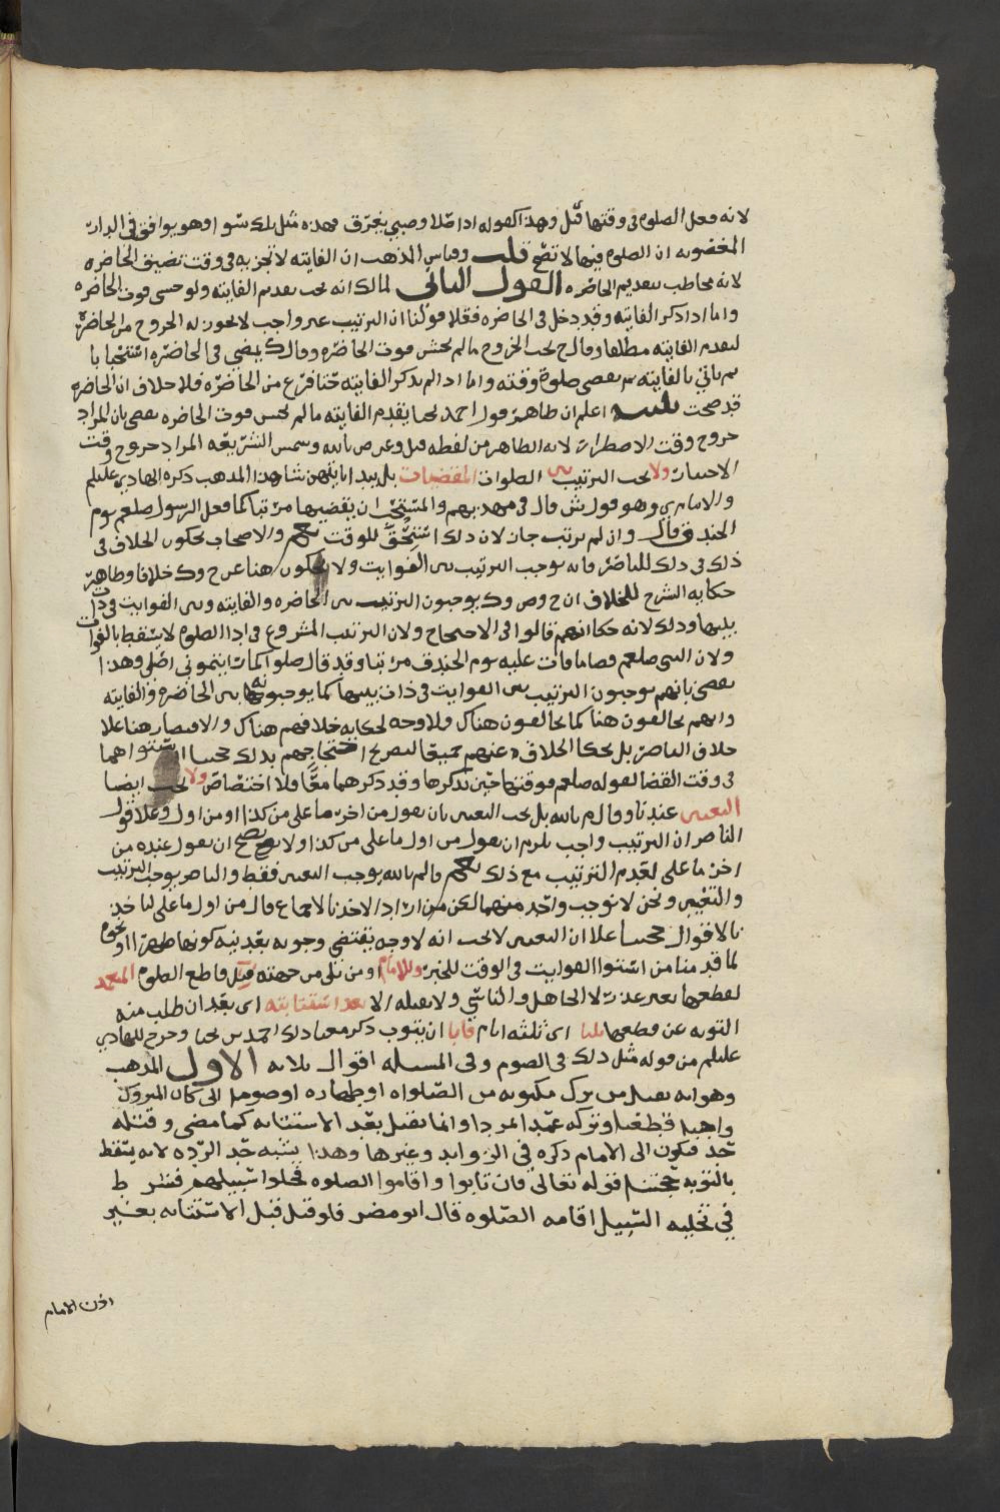 لانه فعل الصلوه في وقتها قبل وهذا كقوله اذا صلا وصبي يغرق فهذه مثل تلك سوا وهو يوافق في الدار
المغصوبه ان الصلوه فيها لا تصح قلت وقياس المذهب ان الفايته لا تجزيه في وقت تضيق الحاضره
لانه مخاطب بتقديم الحاضره القول الثاني لمالك انه يجب تقديم الفايته ولو خشي فوت الحاضره
واما اذا ذكر الفايته وقد دخل في الحاضره فعلا قولنا ان الترتيب غير واجب لا يجوز له الخروج من الحاضره
لتقديم الفايته مطلقا وقال ح يجب الخروج ما لم يخش فوت الحاضره وقال ك يمضي في الحاضره استحبابا
ثم ياتي بالفايته ثم يقضي صلوة وقته واما اذا لم يذكر الفايته حتا فرغ من الحاضره فلا خلاف ان الحاضره
قد صحت تنبيه اعلم ان ظاهر قول احمد بن يحيا يقدم الفايته ما لم يخش فوت الحاضره يقضي بان المراد
خروج وقت الاضطرار لانه الظاهر من لفظه قيل وعرض بالله وشمس الشريعه المراد خروج وقت
الاختيار ولا يجب الترتيب بين الصلوات المقضيات بل يبدا بايتهن شا هذا المذهب ذكره الهادي عليلم
والامام ي وهو قول ش قال في مهذبهم والمستحب ان يقضيها مرتبا كما فعل الرسول صلعم يوم
الخندق قال وان لم يرتب جاز لان ذلك استحق للوقت نعم والاصحاب يحكون الخلاف في
ذلك في ذلك للناصر فانه يوجب الترتيب بين الفوايت ولا يحكون هنا عن ح وك خلافا وظاهر
حكايه الشرح للخلاف ان ح وص وك يوجبون الترتيب بين الحاضره والفايته وبين الفوايت في ذات
بينها وذلك لانه حكا انهم قالوا في الاحتجاج ولان الترتيب المشروع في ادا الصلوه لا يسقط بالفوات
ولان النبي صلعم قضا ما فات عليه يوم الخندق مرتبا وقد قال صلوا كما رايتموني اصلي وهذا
يقضي بانهم يوجبون الترتيب بين الفوايت في ذات بينها كما يوجبونه بين الحاضره والفايته
وانهم يخالفون هنا كما يخالفون هناك فلا وجه لحكايه خلافهم هناك والاقتصار هنا علا
خلاف الناصر بل يحكا الخلاف عنهم جميعا لتصريح احتجاجهم بذلك حجتنا استواهما
في وقت القضا لقوله صلعم فوقتها حين يذكرها وقد ذكرهما معا فلا اختصاص ولا يجب ايضا
التعيين عندنا وقال م بالله بل يجب التعيين بان يقول من اخر ما علي من كذا او من اول وعلا قول
الناصر ان الترتيب واجب يلزم ان يقول من اول ما علي من كذا ولا يصح ان يقول عنده من
اخر ما علي لتقدم الترتيب مع ذلك نعم فالم بالله يوجب التعيين فقط والناصر يوجب الترتيب
والتعيين ونحن لا نوجب واحد منهما لكن من اراد الاخذ بالاجماع قال من اول ما علي لياخذ
بالاقوال حجتنا علا ان التعيين لا يجب انه لا وجه يقتضي وجوبه بعد نيه كونها ظهرا او نحوه
لما قدمنا من استوا الفوايت في الوقت للخبر وللامام او من تلى من جهته قتل قاطع الصلوه المتعمد
لقطعها بغير عذر لا الجاهل والناسي ولا يقتله الا بعد استتابته اي بعد ان طلب منه
التوبه عن قطعها ثلثا اي ثلثه ايام فابا ان يتوب ذكر معنا ذلك احمد بن يحيا وخرج للهادي
عليلم من قوله مثل ذلك في الصوم وفي المسله اقوال ثلاثه الاول المذهب
وهو انه يقتل من ترك مكتوبه من الصلواه او طهاره او صوما اذا كان المتروك
واجبا قطعيا وتركه عمدا تمردا وانما يقتل بعد الاستتابه كما مضى وقتله
حد فيكون الى الامام ذكره في الزوايد وغيرها وهذا يشبه حد الرده لانه يسقط
بالتوبه حجتنا قوله تعالى فان تابوا واقاموا الصلوه فخلوا سبيلهم فشرط
في تخليه السبيل اقامه الصلوه قال ابو مضر فلو قتل قبل الاستتابه بغير
اذن الامام